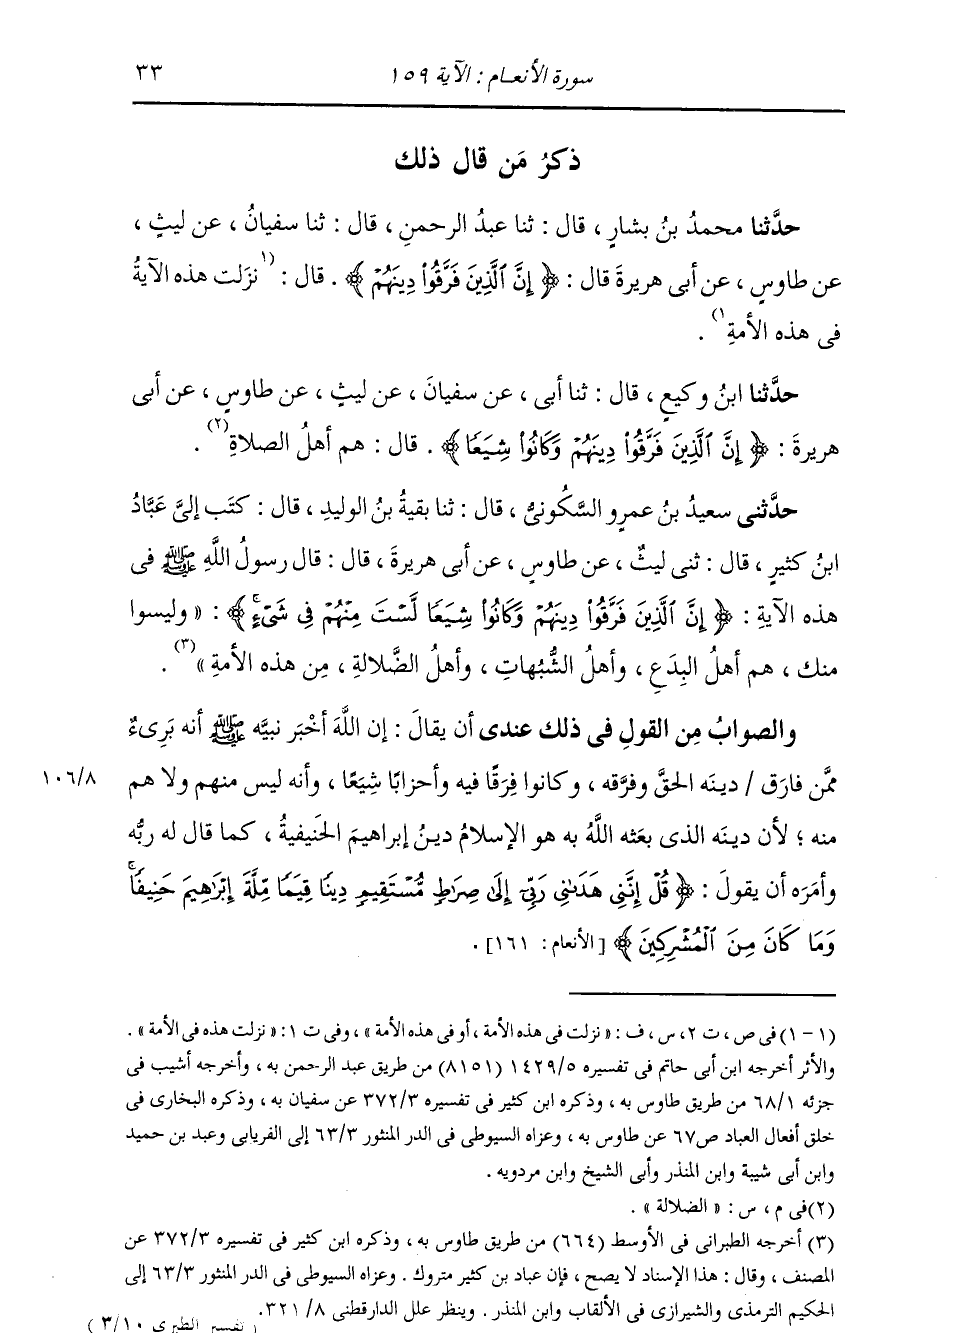 سورة الأنعام : الآية ١٥٩ ٣٣
ذكرُ مَن قال ذلك
حدَّثنا محمدُ بنُ بشارٍ ، قال : ثنا عبدُ الرحمنِ ، قال : ثنا سفيانُ ، عن ليثٍ ،
عن طاوسٍ ، عن أبى هريرةَ قال : ﴿ إِنَّ ٱلَّذِينَ فَرَّقُوا۟ دِينَهُمْ ﴾ . قال : (١نزَلت هذه الآيةُ
فى هذه الأمةِ١) .
حدَّثنا ابنُ وكيعٍ ، قال : ثنا أبى ، عن سفيانَ ، عن ليثٍ ، عن طاوسٍ ، عن أبى
هريرةَ : ﴿ إِنَّ ٱلَّذِينَ فَرَّقُوا۟ دِينَهُمْ وَكَانُوا۟ شِيَعًا ﴾ . قال : هم أهلُ الصلاةِ(٢) .
حدَّثنى سعيدُ بنُ عمرٍو السَّكُونىُّ ، قال : ثنا بقيةُ بنُ الوليدِ ، قال : كتَب إلىَّ عَبَّادُ
ابنُ كثيرٍ ، قال : ثنى ليثٌ ، عن طاوسٍ ، عن أبى هريرةَ ، قال : قال رسولُ اللَّهِ ﷺ فى
هذه الآيةِ : ﴿ إِنَّ ٱلَّذِينَ فَرَّقُوا۟ دِينَهُمْ وَكَانُوا۟ شِيَعًا لَّسْتَ مِنْهُمْ فِى شَىْءٍ ﴾ : « وليسوا
منك ، هم أهلُ البِدَعِ ، وأهلُ الشُّبُهاتِ ، وأهلُ الضَّلالةِ ، مِن هذه الأمةِ »(٣) .
والصوابُ مِن القولِ فى ذلك عندى أن يقالَ : إن اللَّهَ أخْبَر نبيَّه ﷺ أنه بَرِىءٌ
ممَّن فارَق / دينَه الحقَّ وفرَّقه ، وكانوا فِرَقًا فيه وأحزابًا شِيَعًا ، وأنه ليس منهم ولا هم ١٠٦/٨
منه ؛ لأن دينَه الذى بعَثه اللَّهُ به هو الإسلامُ دينُ إبراهيمَ الحَنيفيةُ ، كما قال له ربُّه
وأمَرَه أن يقولَ : ﴿ قُلْ إِنَّنِى هَدَىٰنِى رَبِّىٓ إِلَىٰ صِرَٰطٍ مُّسْتَقِيمٍ دِينًا قِيَمًا مِّلَّةَ إِبْرَٰهِيمَ حَنِيفًا ۚ
وَمَا كَانَ مِنَ ٱلْمُشْرِكِينَ ﴾ [الأنعام : ١٦١] .
(١ – ١) فى ص ، ت ٢، س ، ف : « نزلت فى هذه الأمة ، أو فى هذه الأمة » ، وفى ت ١: « نزلت هذه فى الأمة » .
والأثر أخرجه ابن أبى حاتم فى تفسيره ١٤٢٩/٥ (٨١٥١) من طريق عبد الرحمن به ، وأخرجه أشيب فى
جزئه ٦٨/١ من طريق طاوس به ، وذكره ابن كثير فى تفسيره ٣٧٢/٣ عن سفيان به ، وذكره البخارى فى
خلق أفعال العباد ص٦٧ عن طاوس به ، وعزاه السيوطى فى الدر المنثور ٦٣/٣ إلى الفريابى وعبد بن حميد
وابن أبى شيبة وابن المنذر وأبى الشيخ وابن مردويه .
(٢)فى م ، س : « الضلالة » .
(٣) أخرجه الطبرانى فى الأوسط (٦٦٤) من طريق طاوس به ، وذكره ابن كثير فى تفسيره ٣٧٢/٣ عن
المصنف ، وقال : هذا الإسناد لا يصح ، فإن عباد بن كثير متروك . وعزاه السيوطى فى الدر المنثور ٦٣/٣ إلى
الحكيم الترمذى والشيرازى فى الألقاب وابن المنذر . وينظر علل الدارقطنى ٣٢١/٨.
( تفسير الطبرى ٣/١٠ )